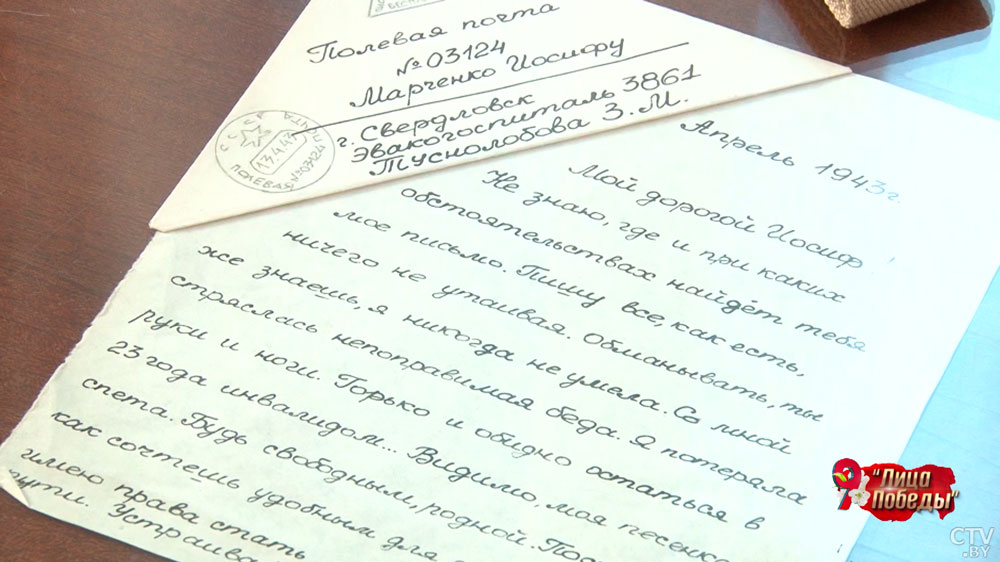 Полевая почта
№ 03124
Марченко Иосифу
г. Свердловск
Эвакогоспиталь 3861
Туснолобова З.М.
СССР ПОЧТА
13.4.43
ПОЛЕВАЯ №03124
Апрель 1943г.
Мой дорогой Иосиф!
Не знаю, где и при каких
обстоятельствах найдёт тебя
мое письмо. Пишу все, как есть,
ничего не утаивая. Обманывать, ты
же знаешь, я никогда не умела. Со мной
стряслась непоправимая беда. Я потеряла
руки и ноги. Горько и обидно остаться в
23 года инвалидом... Видимо, моя песенка
спета. Будь свободным, родной.
как сочтешь удобным для
имею права стать
пути. Устраива
"Лица
Победы"
CTV
.BY